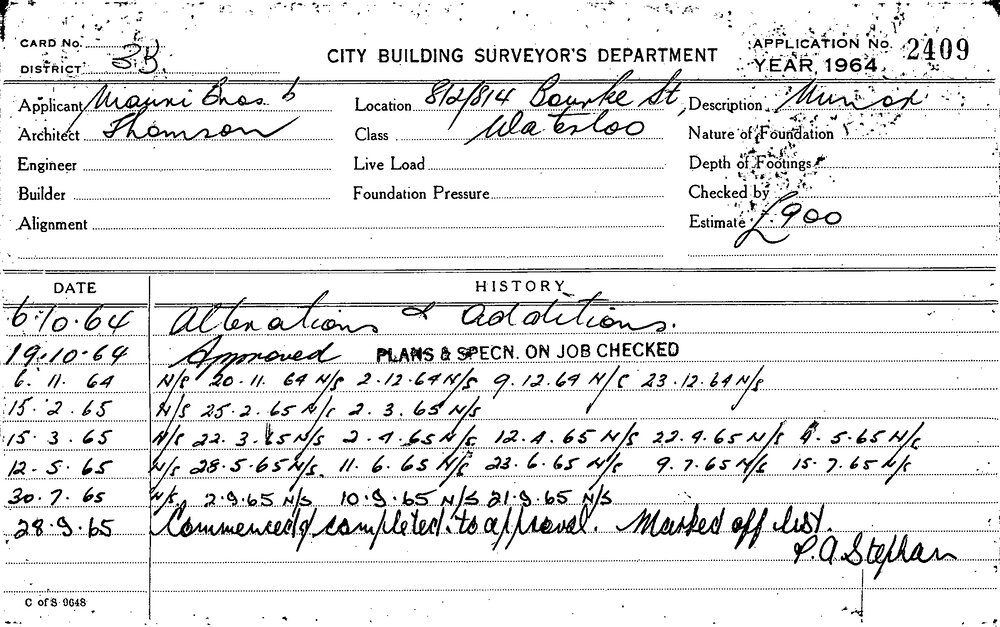 CARD No.
DISTRICT 3B.
CITY BUILDING SURVEYOR'S DEPARTMENT
APPLICATION No. 2409
YEAR 1964
Applicant Mauri Bros. &
Architect Thomson
Engineer
Builder
Alignment
Location 812/814 Bourke St,
Class Waterloo
Live Load
Foundation Pressure
Description Minor
Nature of Foundation
Depth of Footings
Checked by
Estimate £900
DATE HISTORY
6.10.64 Alterations & additions.
19.10.64 Approved PLANS & SPECN. ON JOB CHECKED
6. 11. 64 N/S 20.11. 64 N/S 2.12.64 N/S 9.12.64 N/S 23.12.64 N/S
15. 2. 65 N/S 25.2.65 N/S 2. 3. 65 N/S
15. 3. 65 N/S 22. 3. 65 N/S 2.4.65 N/S 12.4.65 N/S 22.4.65 N/S 4.5.65 N/S
12. 5. 65 N/S 28.5.65 N/S. 11.6.65 N/S 23.6.65 N/S 9.7.65 N/S 15.7.65 N/S
30. 7. 65 N/S. 2.9.65 N/S 10.9.65 N/S 21.9.65 N/S
28.9.65 Commenced & completed to approval. Marked off list.
P. A. Stephan
C of S 9648